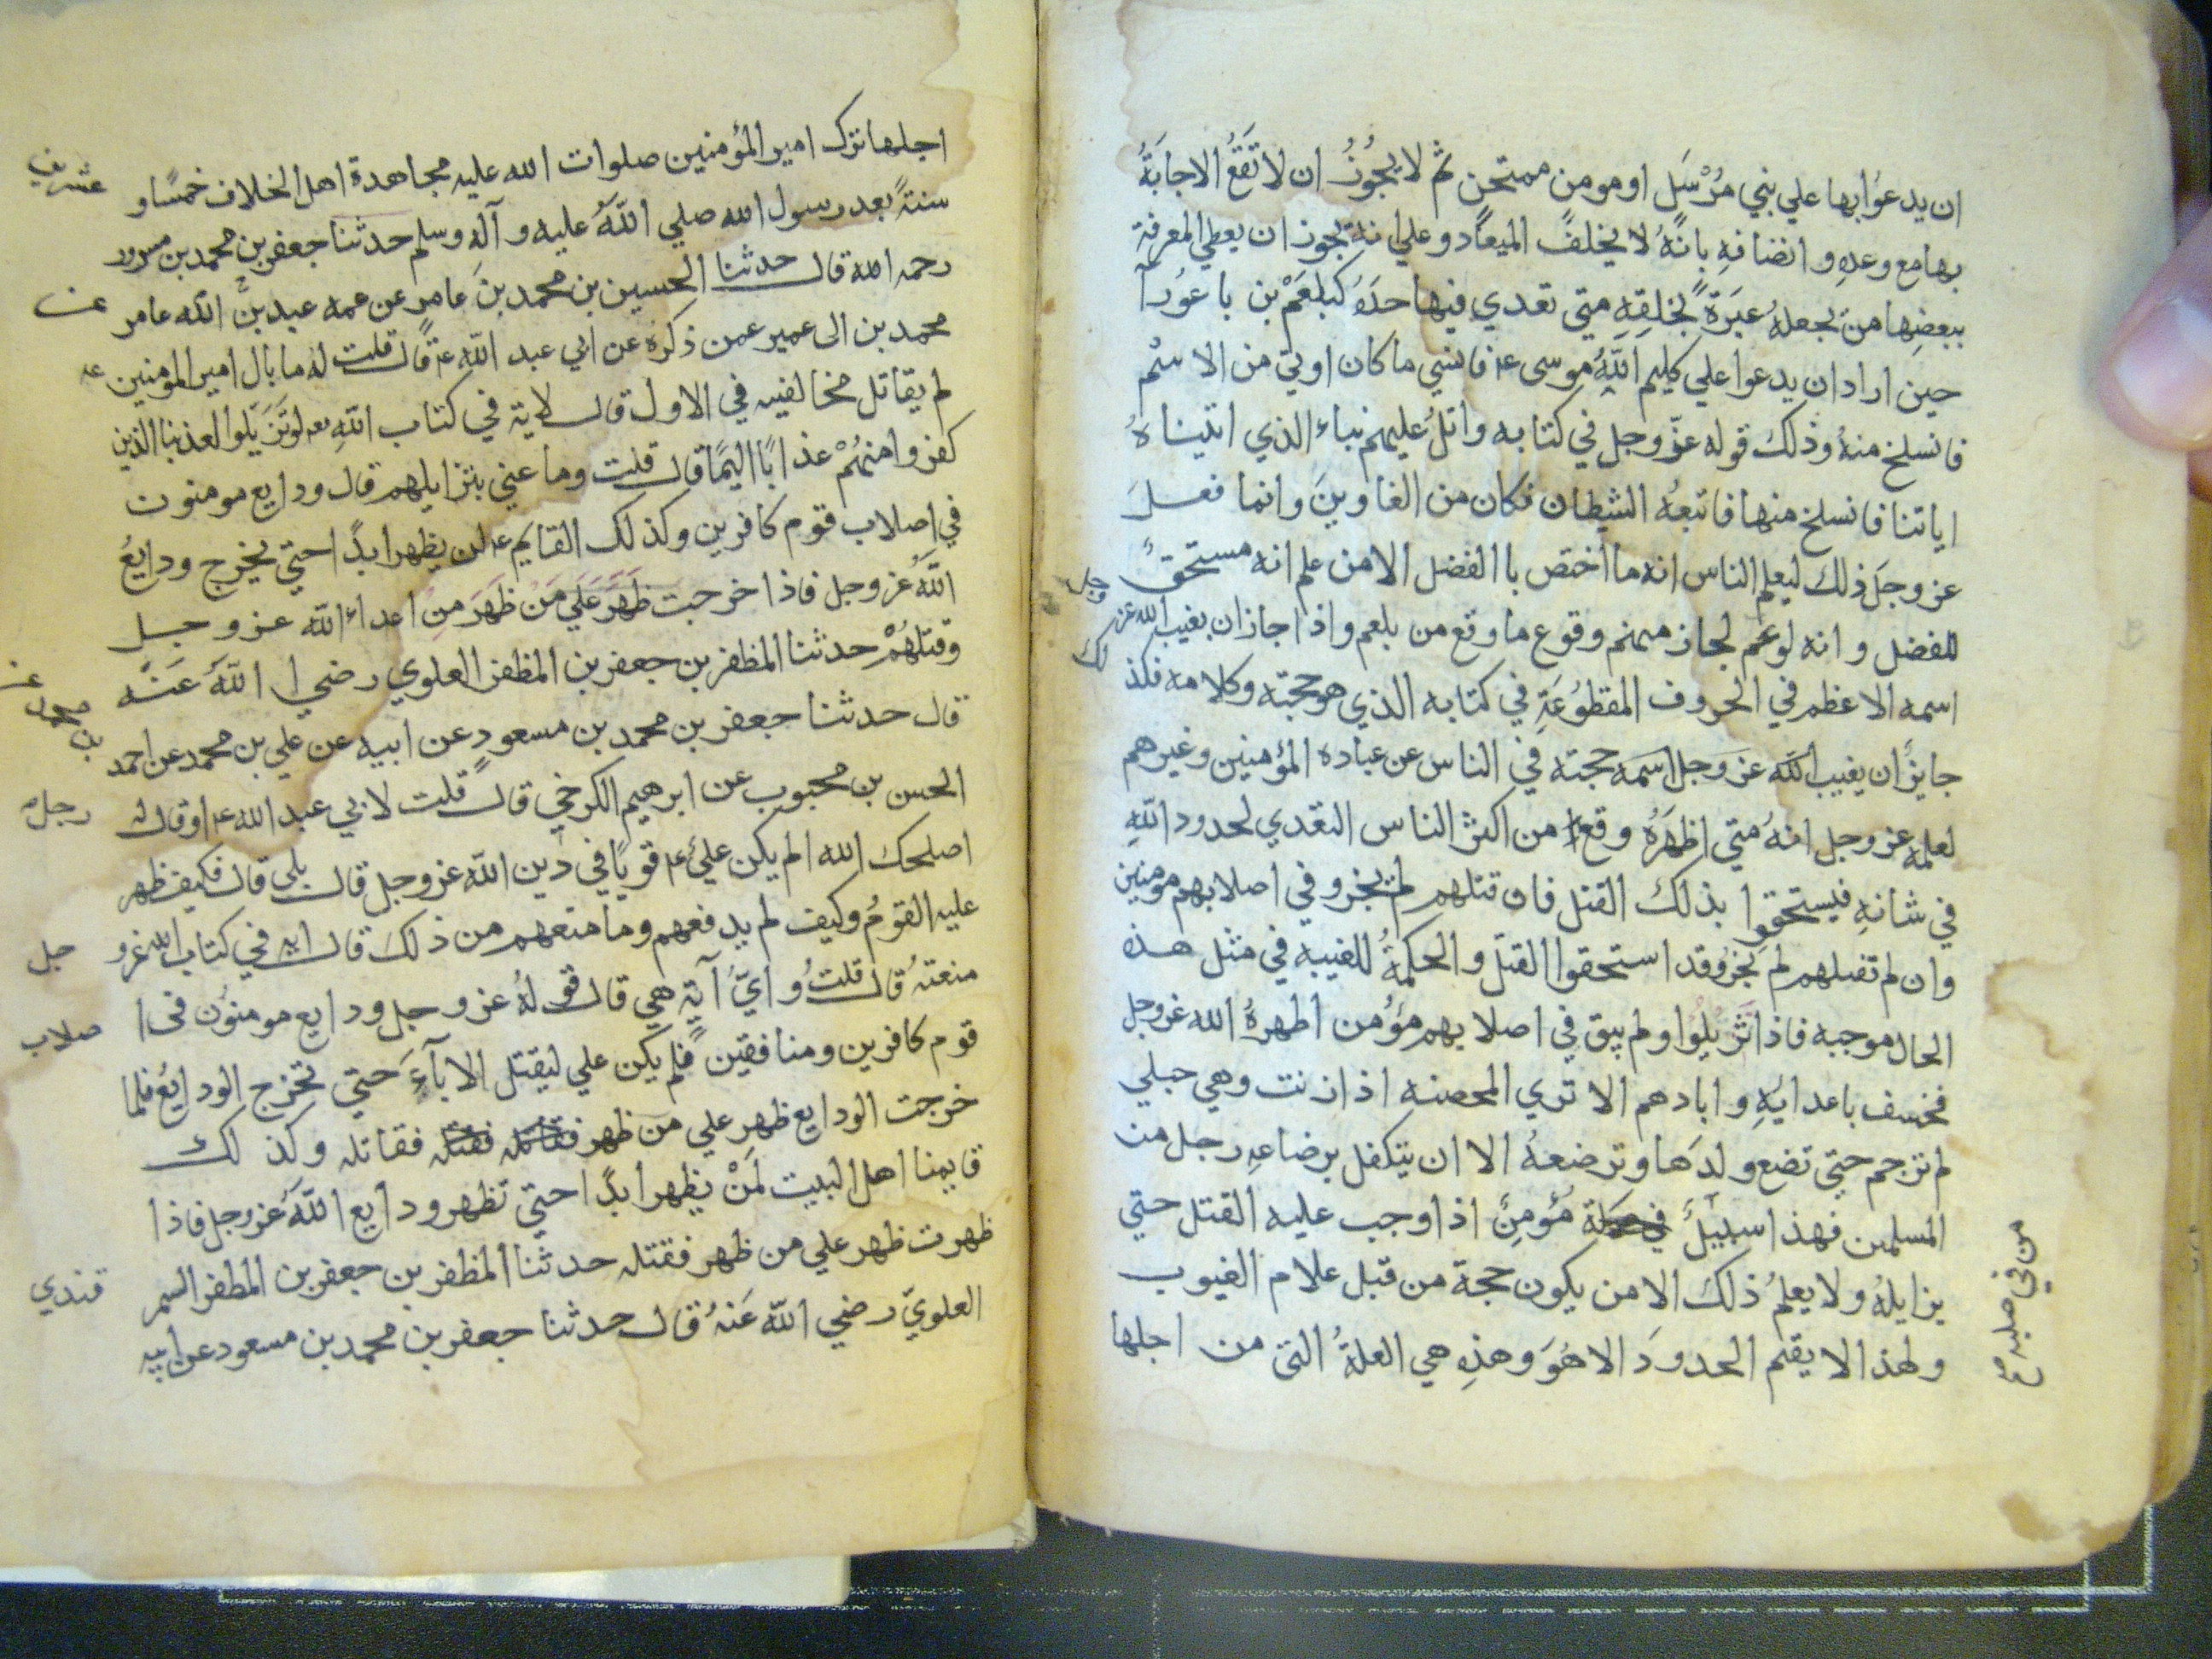 ان يدعوا بها علي بني مُرْسَل او مومن ممتحن ثم لا يجُوزُ ان لا تَقَعُ الاجابَةُ
بها مع وعدِهِ وانضافهِ بانّهُ لا يخلفُ الميعاد وعلي انه يجوز ان يعطي المعرفة
ببعضِها من يجعلهُ عِبَرةً لخلقِهِ متي تعدي فيها حدَهُ كبلعَمْ بن باعَوُرآ
حين اراد ان يدعوا علي كليم اللّهِ موسى ع‍ فانسي ما كان اوتي من الاسْم
فانسلخ منهُ وذلك قوله عزّ وجل في كتابه واتلُ عليهم نباء الذي اتيناهُ
اياتنا فانسلخ منها فاتبعهُ الشيطان فكان من الغاوينَ وانما فعلَ
عز وجلَ ذلك ليعلم الناس انه ما اختص باالفضل الا من علم انه مستحقٌ
للفضل وانه لو عمّ لجاز منهم وقوع ما وقع من بلعم واذا جاز ان يغيب الله عز وجل
اسمه الاعظم في الحروف المقطوُعَةِ في كتابه الذي هو حجته وكلامه فكذ لك
جايزٌ ان يغيب اللّه عز وجل اسمه حجته في الناس عن عباده المؤمنين وغيرهم
لعلمه عز وجل انهُ متي اظهرَهُ وقع من اكثر الناس التعدي لحدود اللّهِ
في شانهِ فيستحقوا بذلك القتل فان قتلهم لم يجز وفي اصلابهم مومنين
وان لم تقبلهم لم يجز وقد استحقوا القتلَ والحكمةُ للغيبه في مثل هذه
الحال موجبه فاذا تزَيلُوا ولم يبق في اصلابهم مؤُمن اظهرهُ الله عز وجل
فخسف باعدايهِ وابادهم الا تري المحصنه اذا زنت وهي حبلي
لم ترجم حتي تضع ولدَها وترضعهُ الا ان يتكفل برضاعهِ رجل من
المسلمين فهذا سبيلُ مُؤمِنٌ اذا وجب عليه القتل حتي
من في صلبه صح
يزايلهُ ولا يعلمُ ذلك الا من يكون حجة من قبل علام الغيوب
ولهذا لا يقيم الحدودَ الا هُوَ وهذِهِ هي العلةُ التي من اجلها
اجلها ترك امير المؤمنين صلوات الله عليهِ مجاهدة اهل الخلاف خمسًا و عشرين
سنةً بعد رسول الله صلي اللّهُ عليه وآلهِ وسلم حدثنا جعفر بن محمد بن مسرور
رحمه الله قال حدثنا الحسين بن محمد بن عامر عن عمه عبد بن اللّه عامر عن
محمد بن الى عمير عمن ذكرَهُ عن ابي عبد اللّه ع‍ قال قلت لهُ ما بال امير المومنين ع‍
لم يقاتل مخالفيهِ في الاول قال لاية في كتاب اللّهِ تع‍ لو تَزَيّلوا لعذبنا الذين
كفروا منهُمْ عذابًا اليمًا قال قلت وما عني بتزايلهم قال ودايع مومنون
في اصلاب قوم كافرين وكذلك القايم ع‍ لن يظهر ابدًا حتي يخرج ودايعُ
اللّهُ عز وجل فاذا خرجت ظَهَرَ عَلَي مَنْ ظَهَرَ مِن اعداء اللّه عز وجل
وقتلهُمْ حدثنا المظفر بن جعفر بن المظفر العلوي رضي ا اللّهُ عَنْهُ
قال حدثنا جعفر بن محمد بن مسعودٍ عن ابيه عن علي بن محمد عن احمد بن محمد عن
الحسن بن محبوب عن ابرهيم الكرخي قال قلت لابي عبد الله ع‍ او قال له رجل
اصلحك الله الم يكن عليٌ ع‍ قويًا في دين اللّه عز وجل قال بلي قال فكيف ظهر
عليه القومُ وكيف لم يدفعهم وما منعهم من ذلك قال ايه في كتاب الله عز و جل
منعتهُ قال قلتُ وايُّ آيةٍ هي قال قولهُ عز وجل ودايع مومنون في ا صلاب
قوم كافرين ومنافقين فلم يكن علي ليقتل الابآءِ حتي تخرج الودايعُ فلما
خرجت الودايع ظهر علي من ظهر فقاتله وكذ لك
قايمنا اهل البيت لَمَنْ يظهر ابدًا حتي تظهر ودايع اللّهُ عز وجل فاذا
ظهرت ظهر علي من ظهر فقتله حدثنا المظفر بن جعفر بن المظفر السمر قندي
العلويّ رضي اللّه عَنهُ قال حدثنا جعفر بن محمد بن مسعود عن ابيه